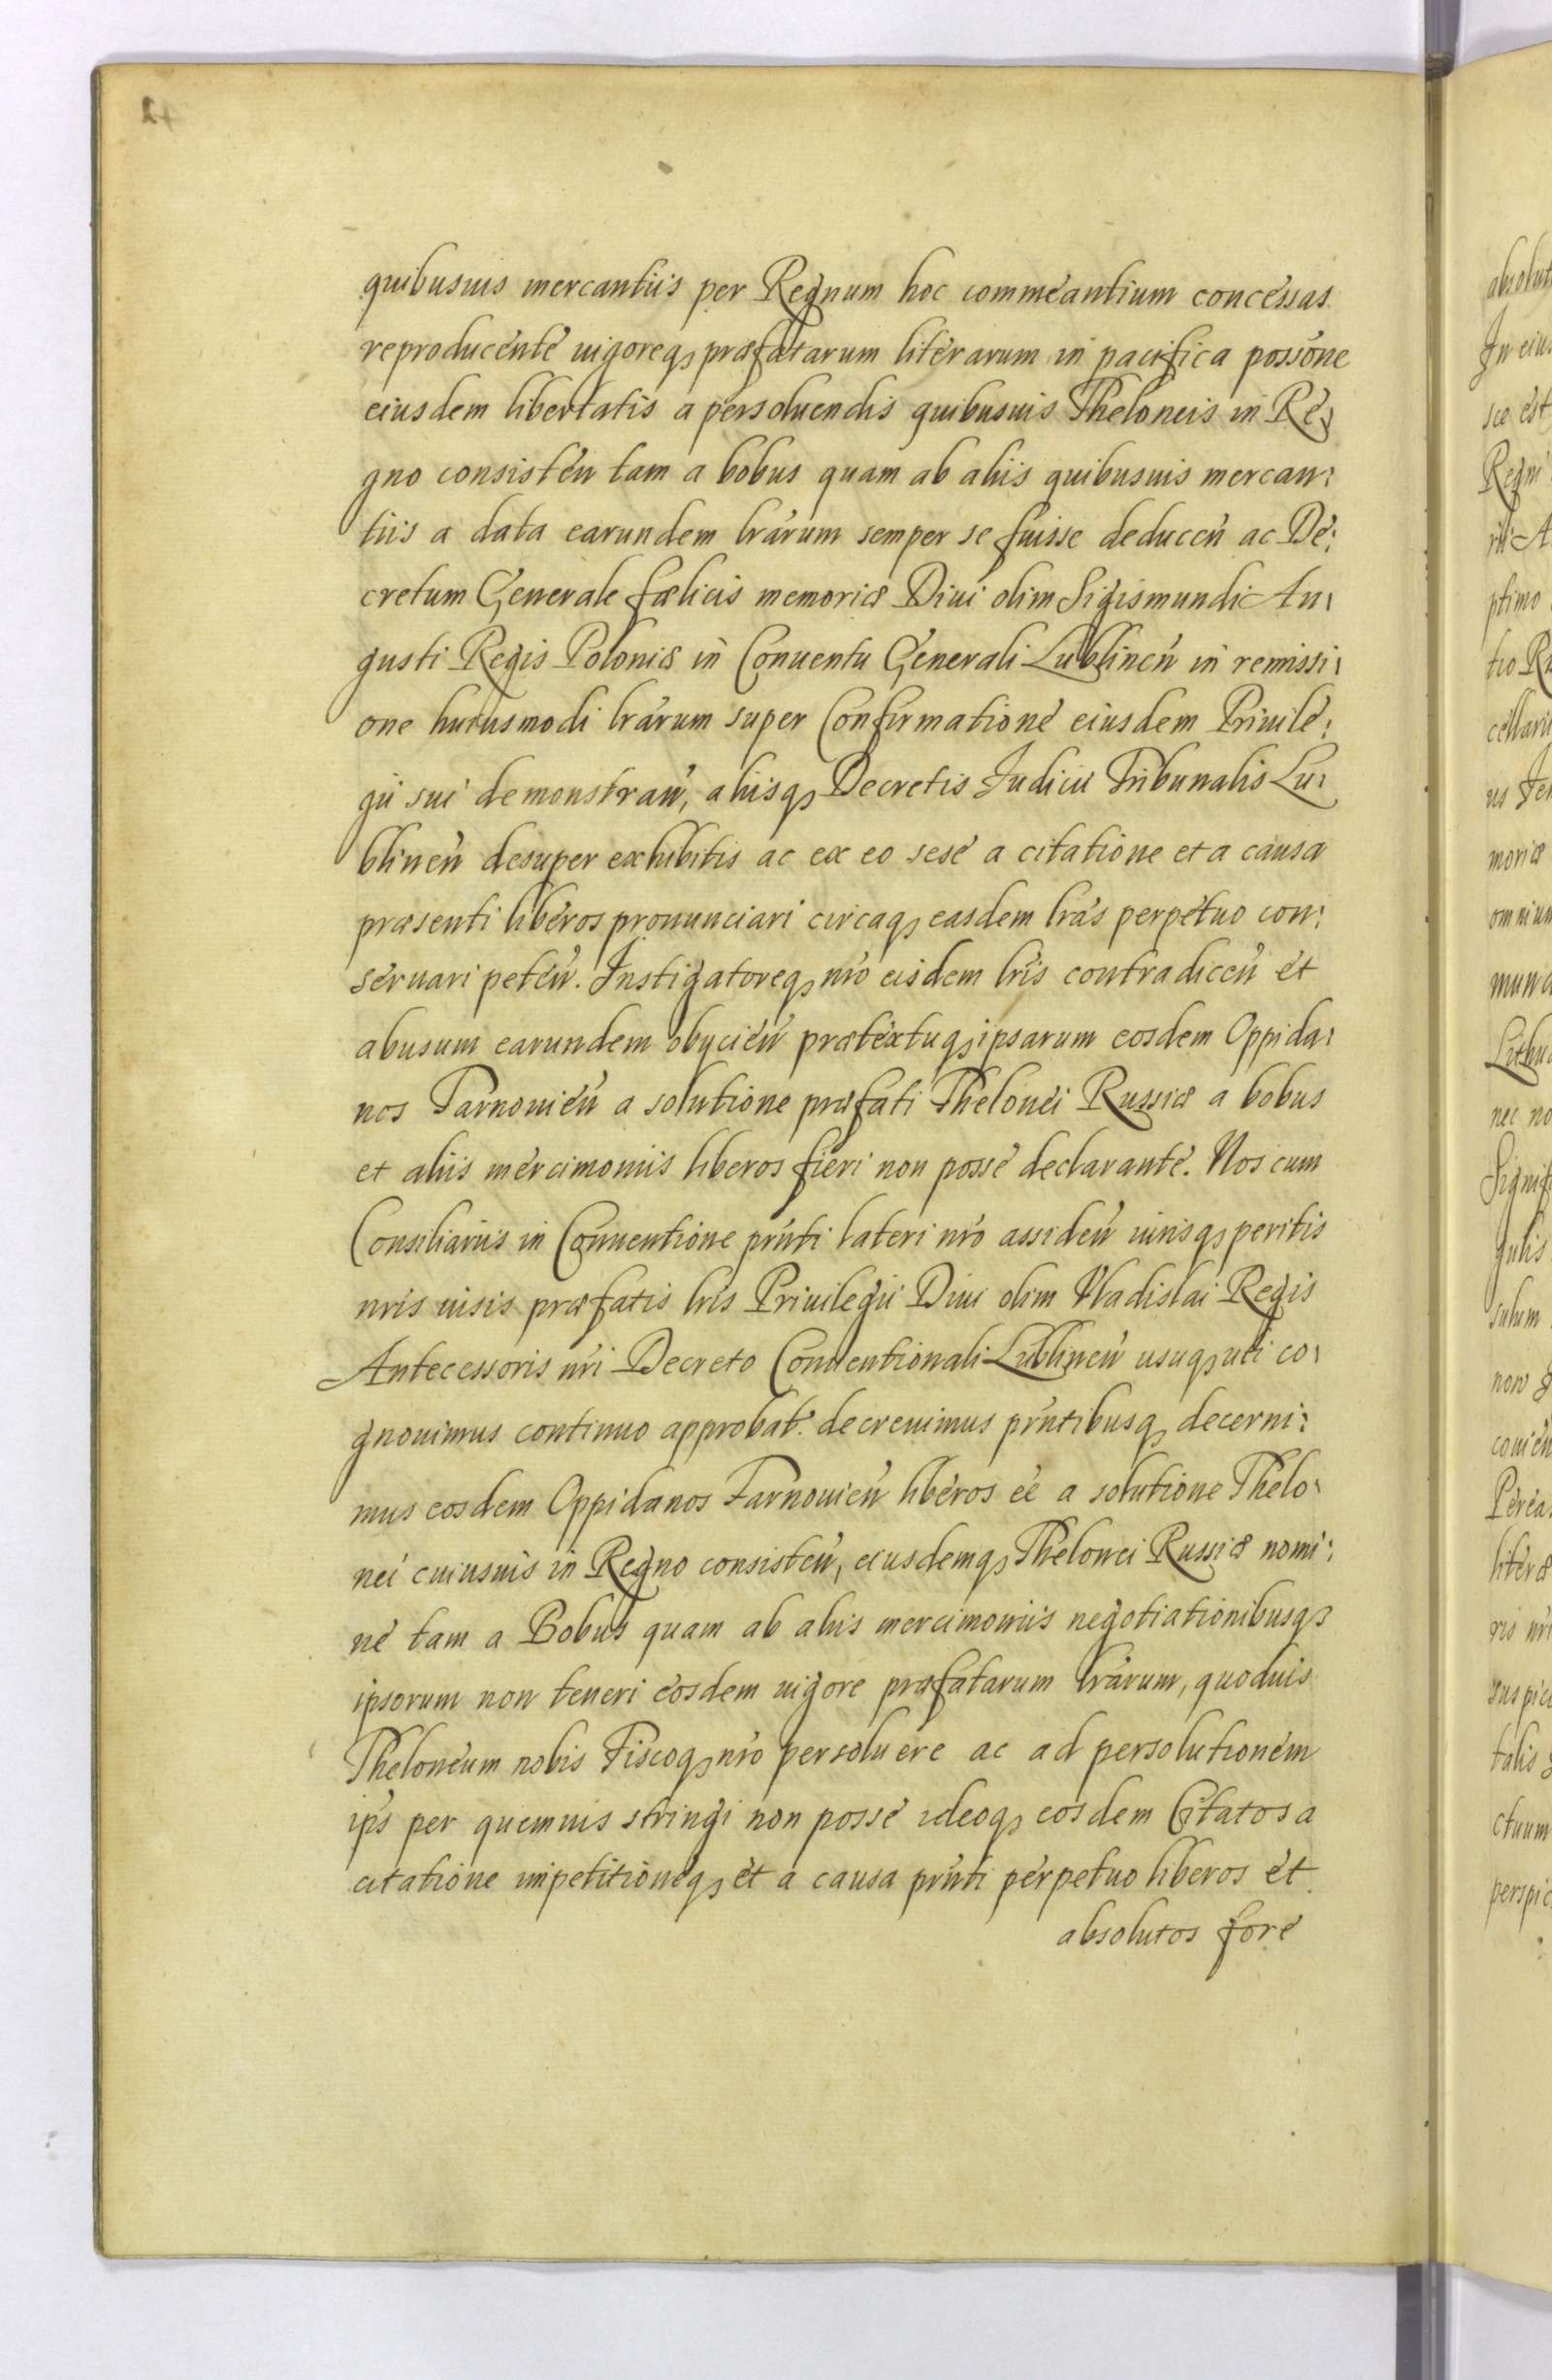 quibusuis mercantiis per Regnum hoc commeantium concessas
reproducente uigoreq₃ præfatarum literarum in pacifica possone
eiusdem libertatis a persoluendis quibusuis Theloneis in Re:
gno consisteñ tam a bobus quam ab aliis quibusuis mercan:
tiis a data earundem lrarum semper se fuisse deduceñ ac De:
cretum Generale fælicis memoriæ Diui olim Sigismundi Au:
gusti Regis Poloniæ in Conuentu Generali Lublineñ in remissi:
one huiusmodi lrarum super Confirmatione eiusdem Priuile:
gii sui demonstrañ, aliisq₃ Decretis Iudicii Tribunalis Lu:
blineñ desuper exhibitis ac ex eo sese a citatione et a causa
præsenti liberos pronunciari circaq₃ easdem lras perpetuo con:
seruari peteñ. Instigatoreq₃ nro eisdem lris contradiceñ et
abusum earundem obycieñ prætextuq₃ ipsarum eosdem Oppida:
nos Tarnouieñ a solutione præfati Thelonei Russiæ a bobus
et aliis mercimoniis liberos fieri non posse declarante. Nos cum
Consiliariis in Conuentione prnti lateri nro assideñ iurisq₃ peritis
nris uisis præfatis lris Priuilegii Diui olim Vladislai Regis
Antecessoris nri Decreto Conuentionali Lublineñ usuq₃ uti co:
gnouimus continuo approbat. decreuimus prntibusq₃ decerni:
mus eosdem Oppidanos Tarnouieñ liberos ee a solutione Thelo:
nei cuiusuis in Regno consisteñ, eiusdemq₃ Thelonei Russiæ nomi:
ne tam a Bobus quam ab aliis mercimoniis negotiationibusq₃
ipsorum non teneri eosdem uigore præfatarum lrarum, quoduis
Theloneum nobis Fiscoq₃ nro persoluere ac ad persolutionem
ips per quemuis stringi non posse ideoq₃ eosdem Citatos a
citatione impetitioneq₃ et a causa prnti perpetuo liberos et
absolutos fore